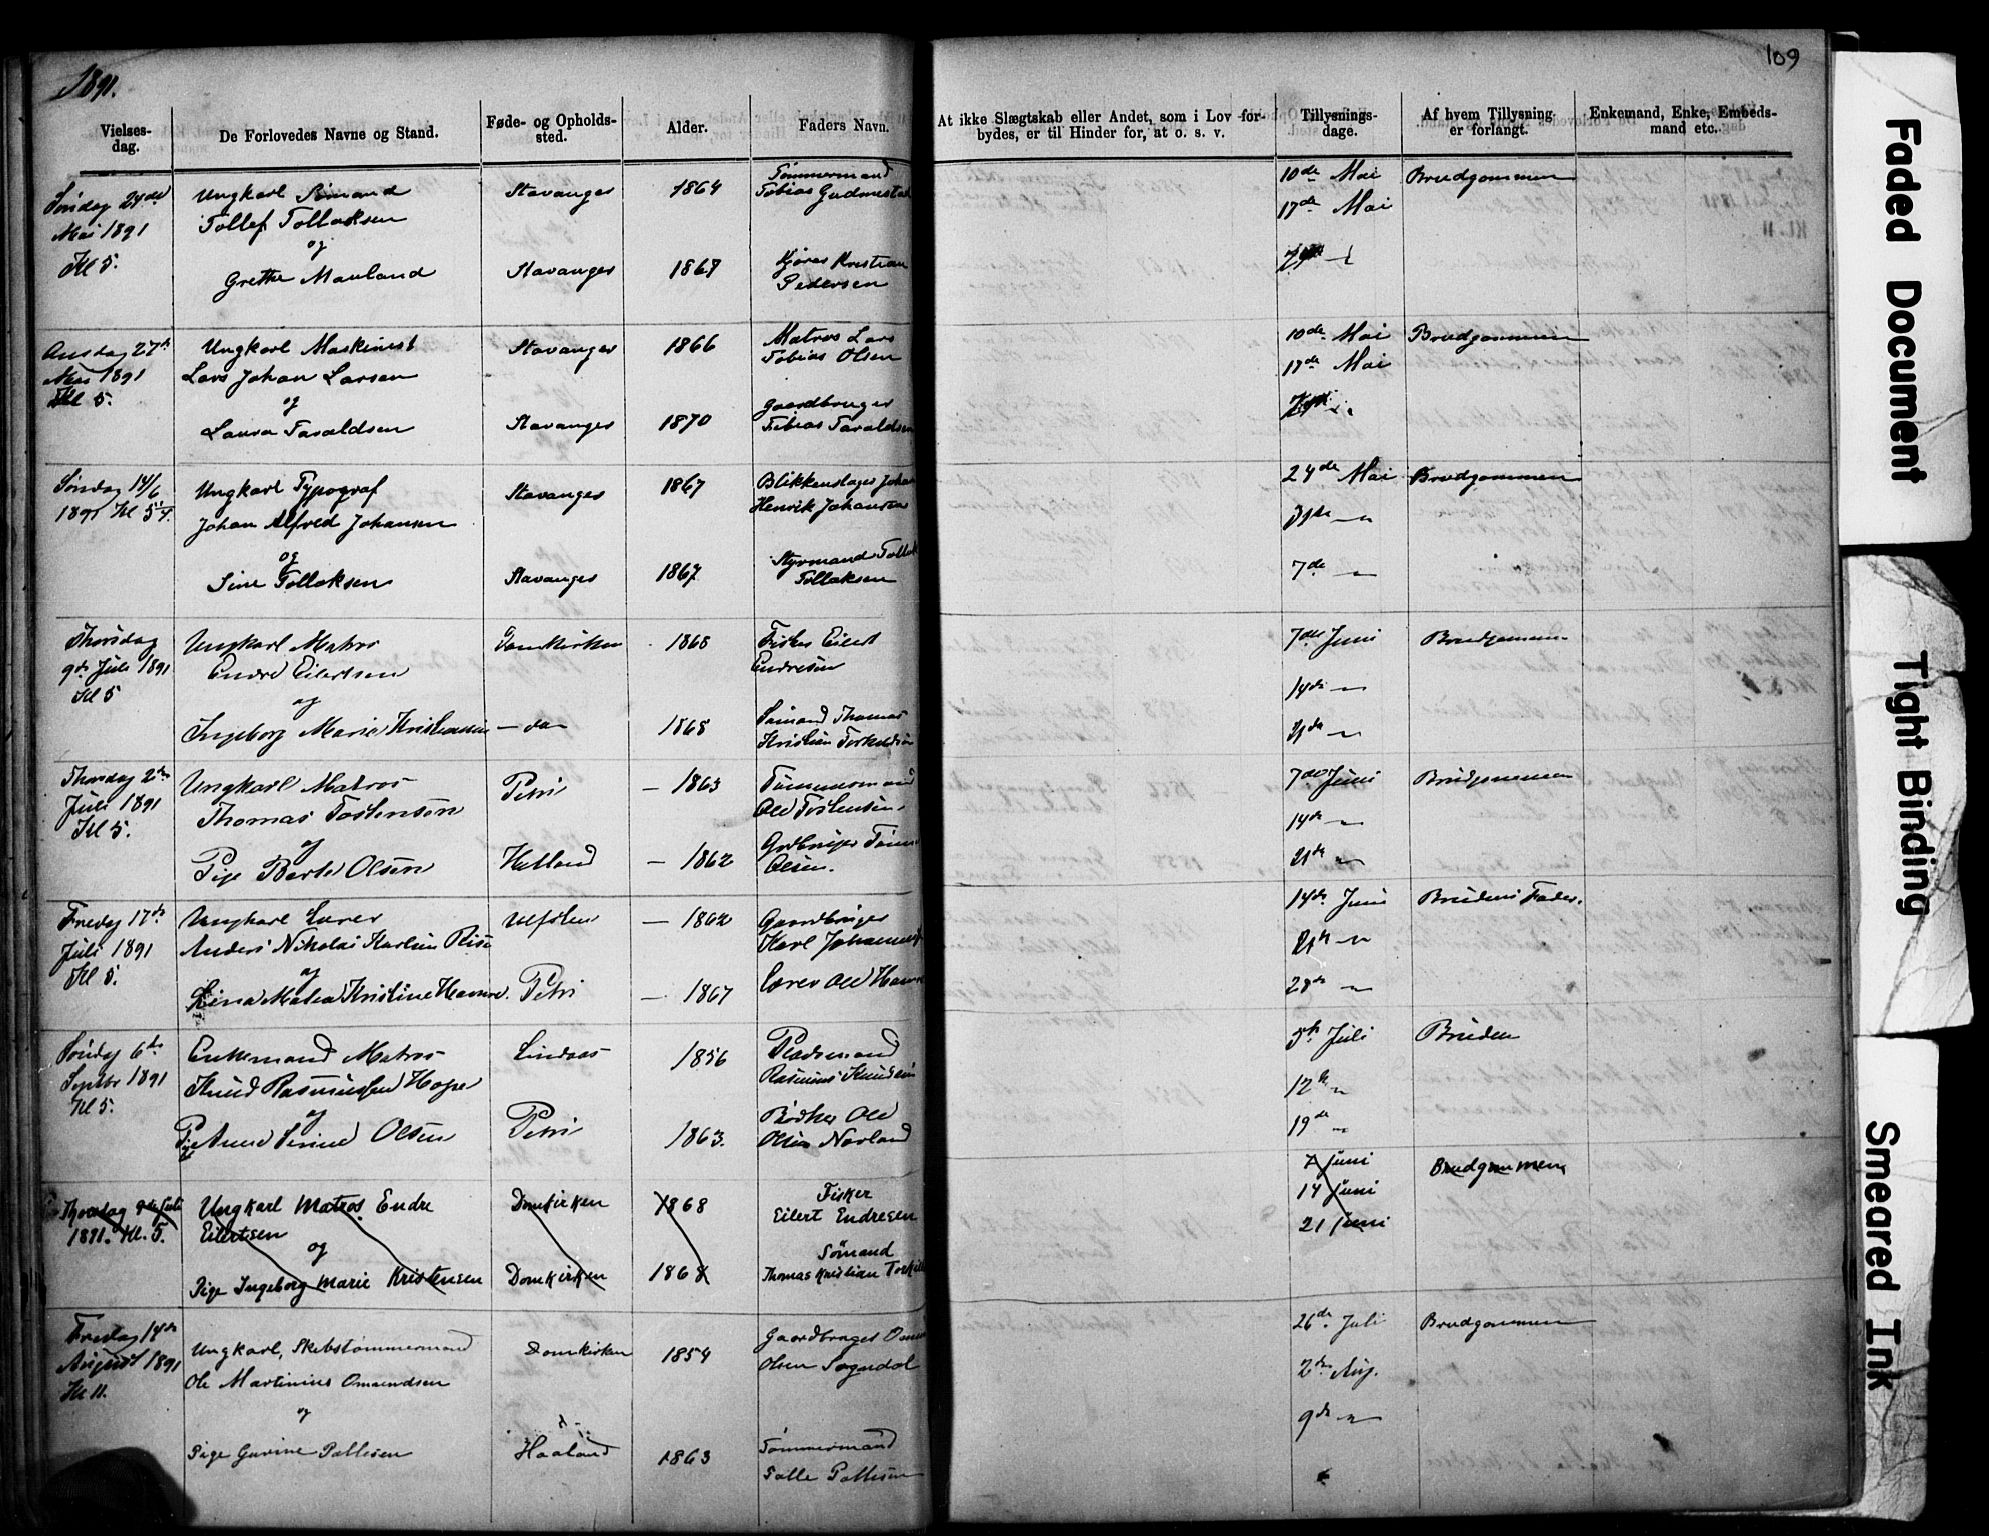 1891.
109
Vielses-
dag.
De Forlovedes Navne og Stand.
Føde- og Opholds-
sted.
Alder.
Faders Navn.
At ikke Slægtskab eller Andet, som i Lov for-
bydes, er til Hinder for, at o. s. v.
Tillysnings-
dage.
Af hvem Tillysning
er forlangt.
Enkemand, Enke, Embeds-
mand etc.
Søndag 24de
Mai 1891
Kl 5.
Ungkarl Sømand
Tollef Tollaksen
og
Grethe Mauland
Stavanger
Stavanger
1864
1867
Tømmermand
Tobias Gudmestad
Kristian
Pedersen
10de Mai
17de Mai
Brudgommen
Onsdag 27de
Mai 1891
Kl 5.
Ungkarl Maskinist
Lars Johan Larsen
og
Laura Taraldsen
Stavanger
Stavanger
1866
1870
Matros Lars
Tobias Olsen
Gaardbruger
Tobias Taraldsen
10de Mai
17de Mai
Brudgommen
Søndag 14/6
1891 Kl 5
Ungkarl Typograf
Johan Alfred Johansen
og
Sine Tollaksen
Stavanger
Stavanger
1867
1867
Blikkenslager Johan
Henrik Johansen
Styrmand Tollak
Tollaksen
24de Mai
31te "
7de "
Brudgommen
Thorsdag
9de Juli 1891
Kl 5
Ungkarl Matros
Endre Eilertsen
og
Ingeborg Marie Kristensen
Domkirken
— do —
1868
1868
Fisker Eilert
Endresen
Sømand Thomas
Kristian Torkildsen
7de Juni
14de "
21de "
Brudgommen
Thorsdag 2den
Juli 1891
Kl 5.
Ungkarl Matros
Thomas Tostensen
og
Pige Berte Olsen
Petri
Hetland
— 1863
— 1862
Tømmermand
Ole Tostensen
Gdbruger
Olsen.
7de Juni
14de "
21de "
Brudgommen
Fredag 17de
Juli 1891
Kl 5.
Ungkarl Lærer
Anders Nikolai Karlsen Risa
og
Lina Malea Kristine Hamre.
Petri
— 1862
— 1867
Gaardbruger
Karl Johannes
Lærer Ole Hamre
14de Juni
21de "
28de "
Brudens Fader.
Søndag 6te
Septbr 1891
Kl 5.
Enkemand Matros
Knud Rasmussen Hope
og
Pige Anne Serine Olsen
Lindaas
Petri
1856
1863.
Pladsmand
Rasmus Knudsen
Bødker Ole
Olsen Norland
5te Juli
12te "
19de "
Bruden
Thorsdag 9de Juli
1891. Kl. 5.
Ungkarl Matros Endre
Eilertsen
og
Pige Ingeborg Marie Kristensen
Domkirken
Domkirken
1868
1868
Fisker
Eilert Endresen
Sømand
Thomas Kristian Torkild
7 Juni
14 Juni
21 Juni
Brudgommen
Fredag 14de
August 1891
Kl 11.
Ungkarl, Skibstømmermand
Ole Martinius Omundsen
og
Pige Gurine Pallesen
Domkirken
Haaland
1854
1863
Gaardbruger
Olsen Sogndal
Tømmermand
Palle Pallesen
26de Juli
2den Aug.
9de "
Brudgommen
Faded Document
Tight Binding
Smeared Ink